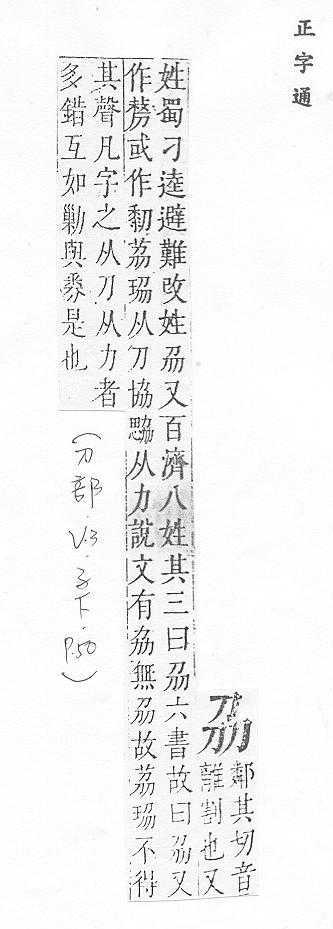 正字通
刕
鄰其切音
離割也又
姓蜀刁逵避難改姓刕又百濟八姓其三曰刕六書故曰刕又
作剺或作荔珕从刀協勰从力說文有劦無刕故荔珕不得
其聲凡字之从刀从力者
多錯互如勦與是也
(刀部.V.3.子下.P.50)